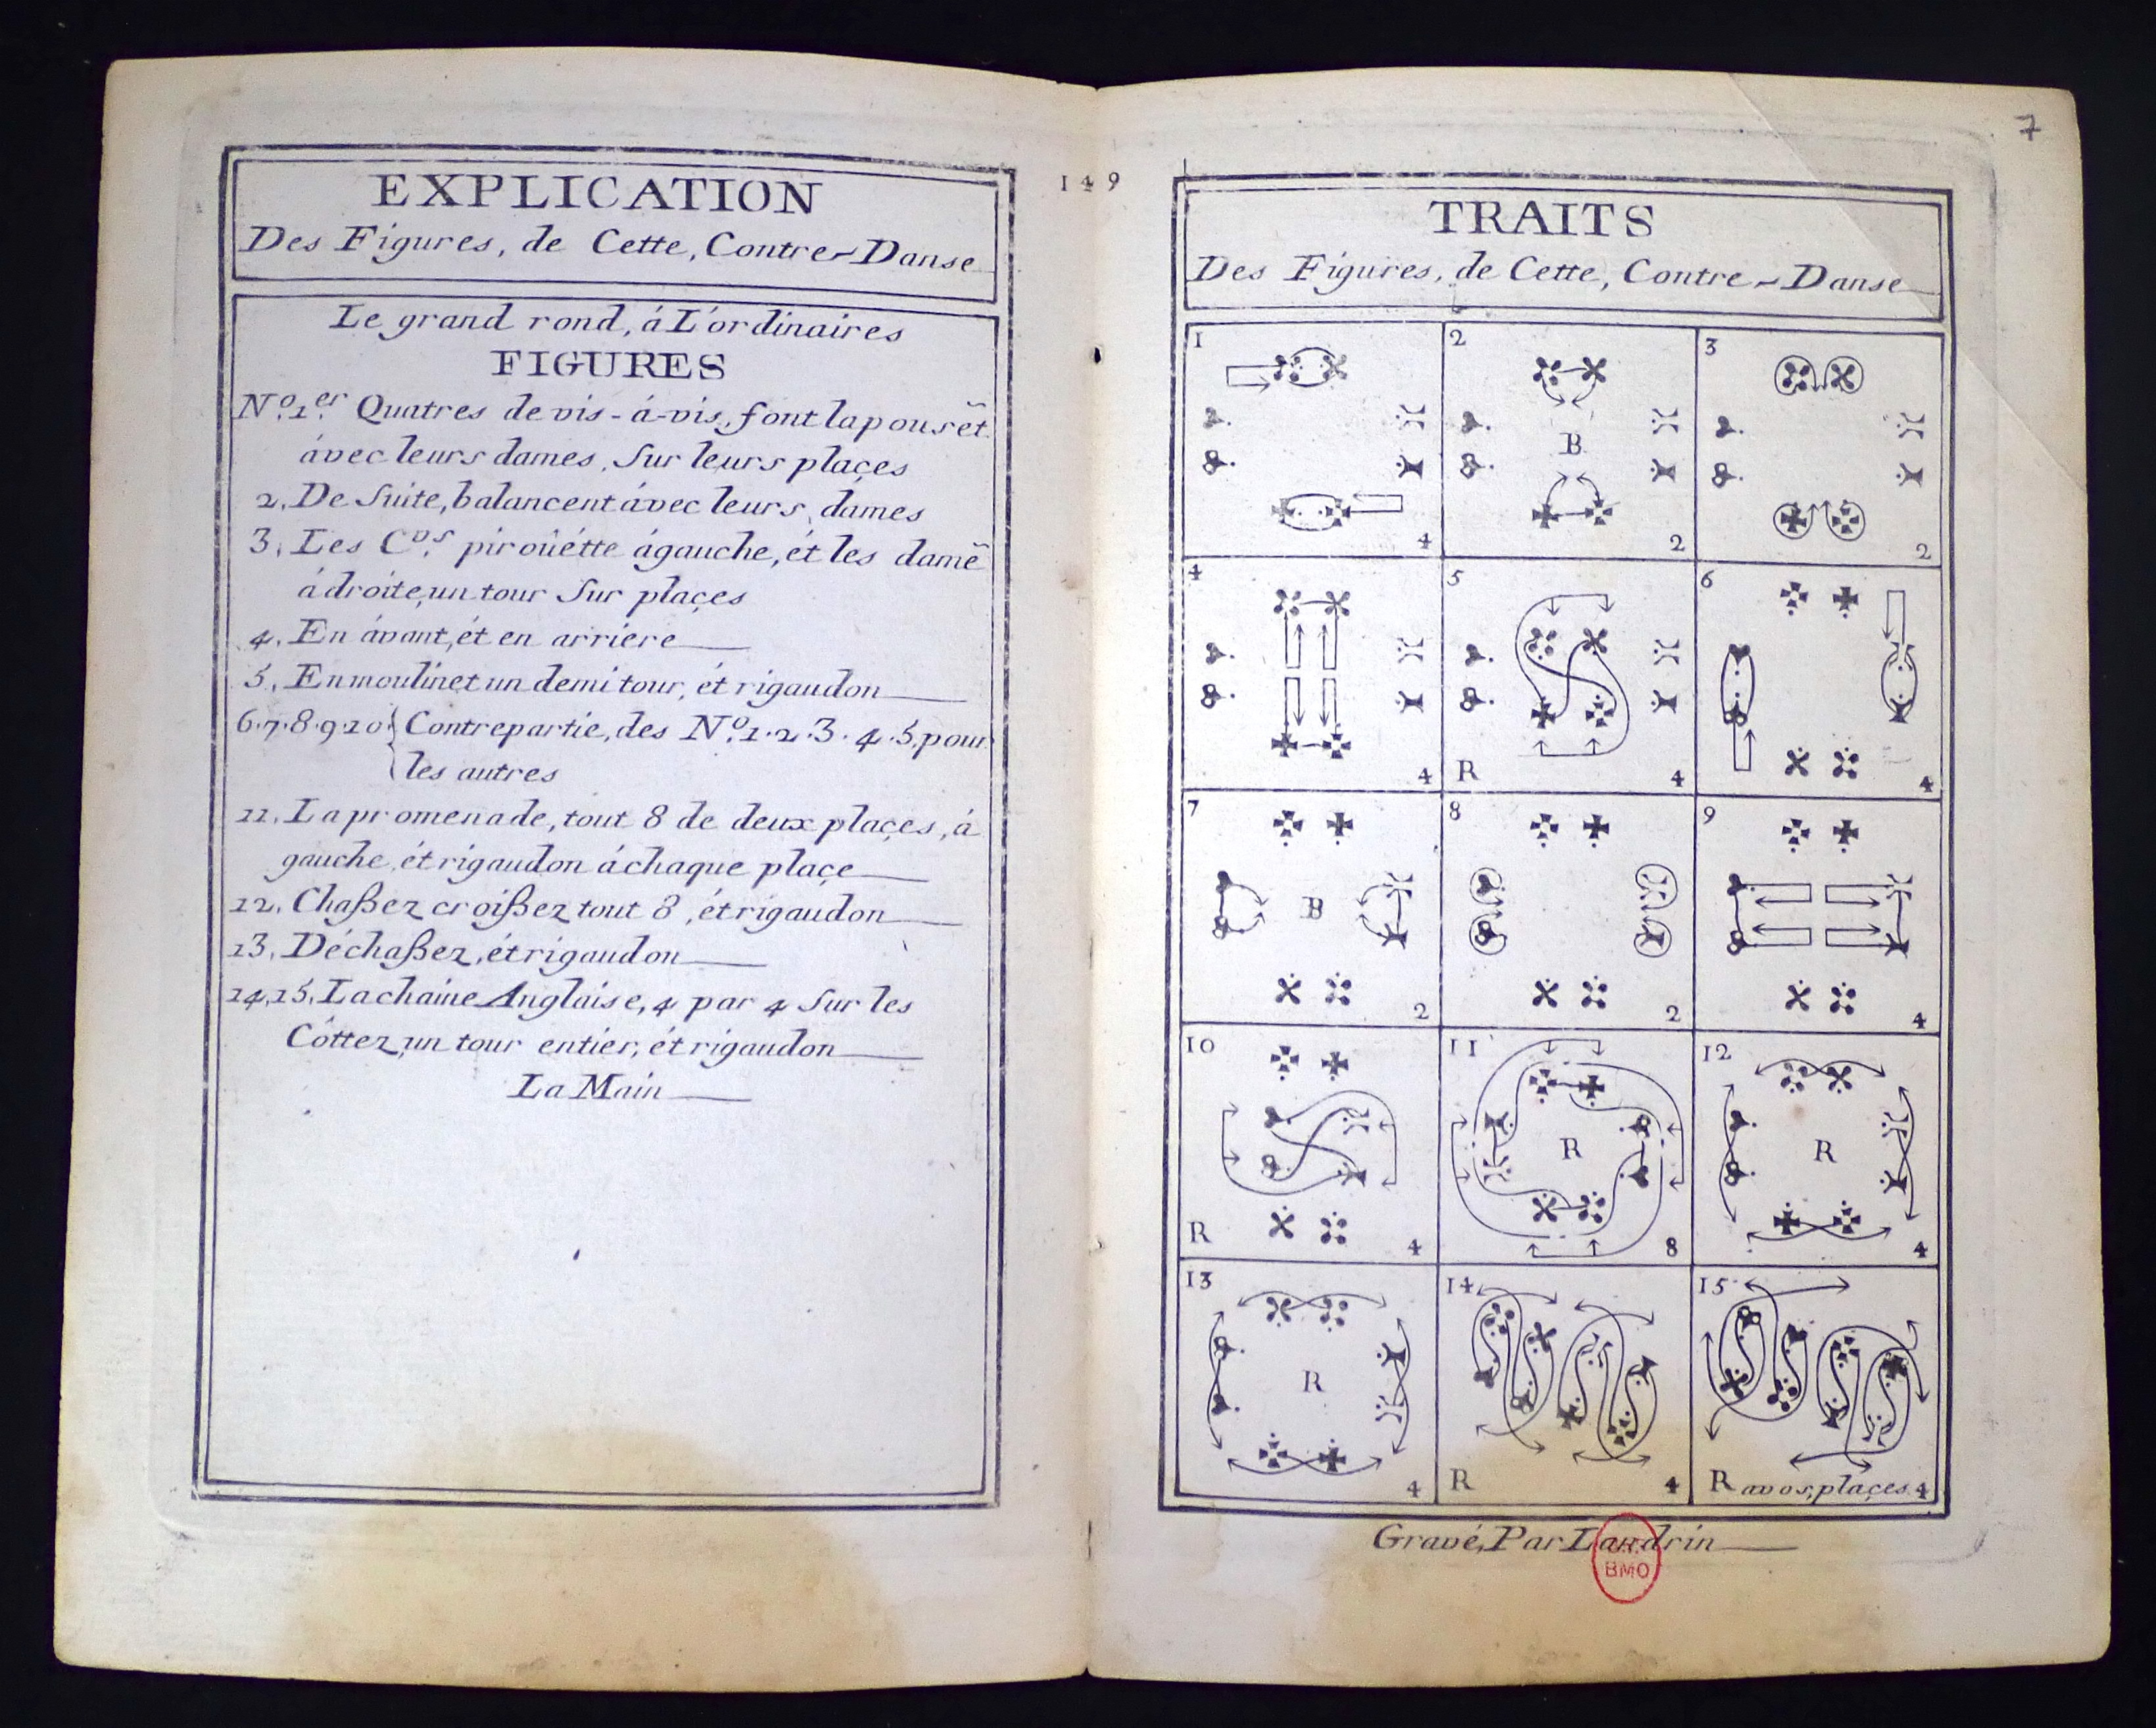 EXPLICATION
Des Figures, de Cette, Contre-Danse
Le grand rond, á L'ordinaires
FIGURES
N.º 1.er Quatres de vis-á-vis, font la pousẽt
ávec leurs dames, Sur leurs plaçes
2. De Suite, balancent ávec leurs, dames
3, Les C.os piroüétte ágauche, ét les damẽ
á droite, un tour Sur plaçes
4. En ávant, ét en arriere
5, En moulinet un demi tour, ét rigaudon
6.7.8.9.10 { Contrepartie, des N.º 1.2.3.4.5, pour
les autres
11. La promenade, tout 8 de deux plaçes, á
gauche, ét rigaudon á chaque plaçe
12. Chaßez croißez tout 8, ét rigaudon
13. Déchaßez, ét rigaudon
14,15. La chaine Anglaise, 4 par 4 Sur les
Côttez, un tour entier, ét rigaudon
La Main
149
7
TRAITS
Des Figures, de Cette, Contre-Danse
1 2 3
B
4 2 2
4 5 6
4 R 4 4
7 8 9
B
2 2 4
10 11 12
R R
R 4 8 4
13 14 15
R
4 R 4 R a vos, plaçes 4
Gravé, Par Landrin
BMO